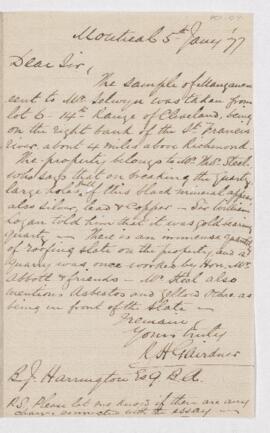 Montreal 5th Jany '77
Dear Sir,
The sample of Manganese
sent to Mr. Selwyn was taken from
lot 6 - 14th Range of Cleveland, being
on the right bank of the St. Francis
river about 4 miles above Richmond.
The property belongs to Mr. Thos. Steel
who says that on breaking the quartz
large holes full of this black mineral appear
also silver, lead & copper - Sir William
Logan told him that it was gold bearing
quartz - There is an immense quantity
of roofing slate on the property, and a
quarry was once worked by Mr.
Abbott & friends - Mr. Steel also
mentions Asbestos and yellow Ochre as
being in front of the Slate -
I remain
Yours truly
R H Gairdner
B. J. Harrington Esq B.A.
P.S. Please let me know if there are any
charges connected with the assay -